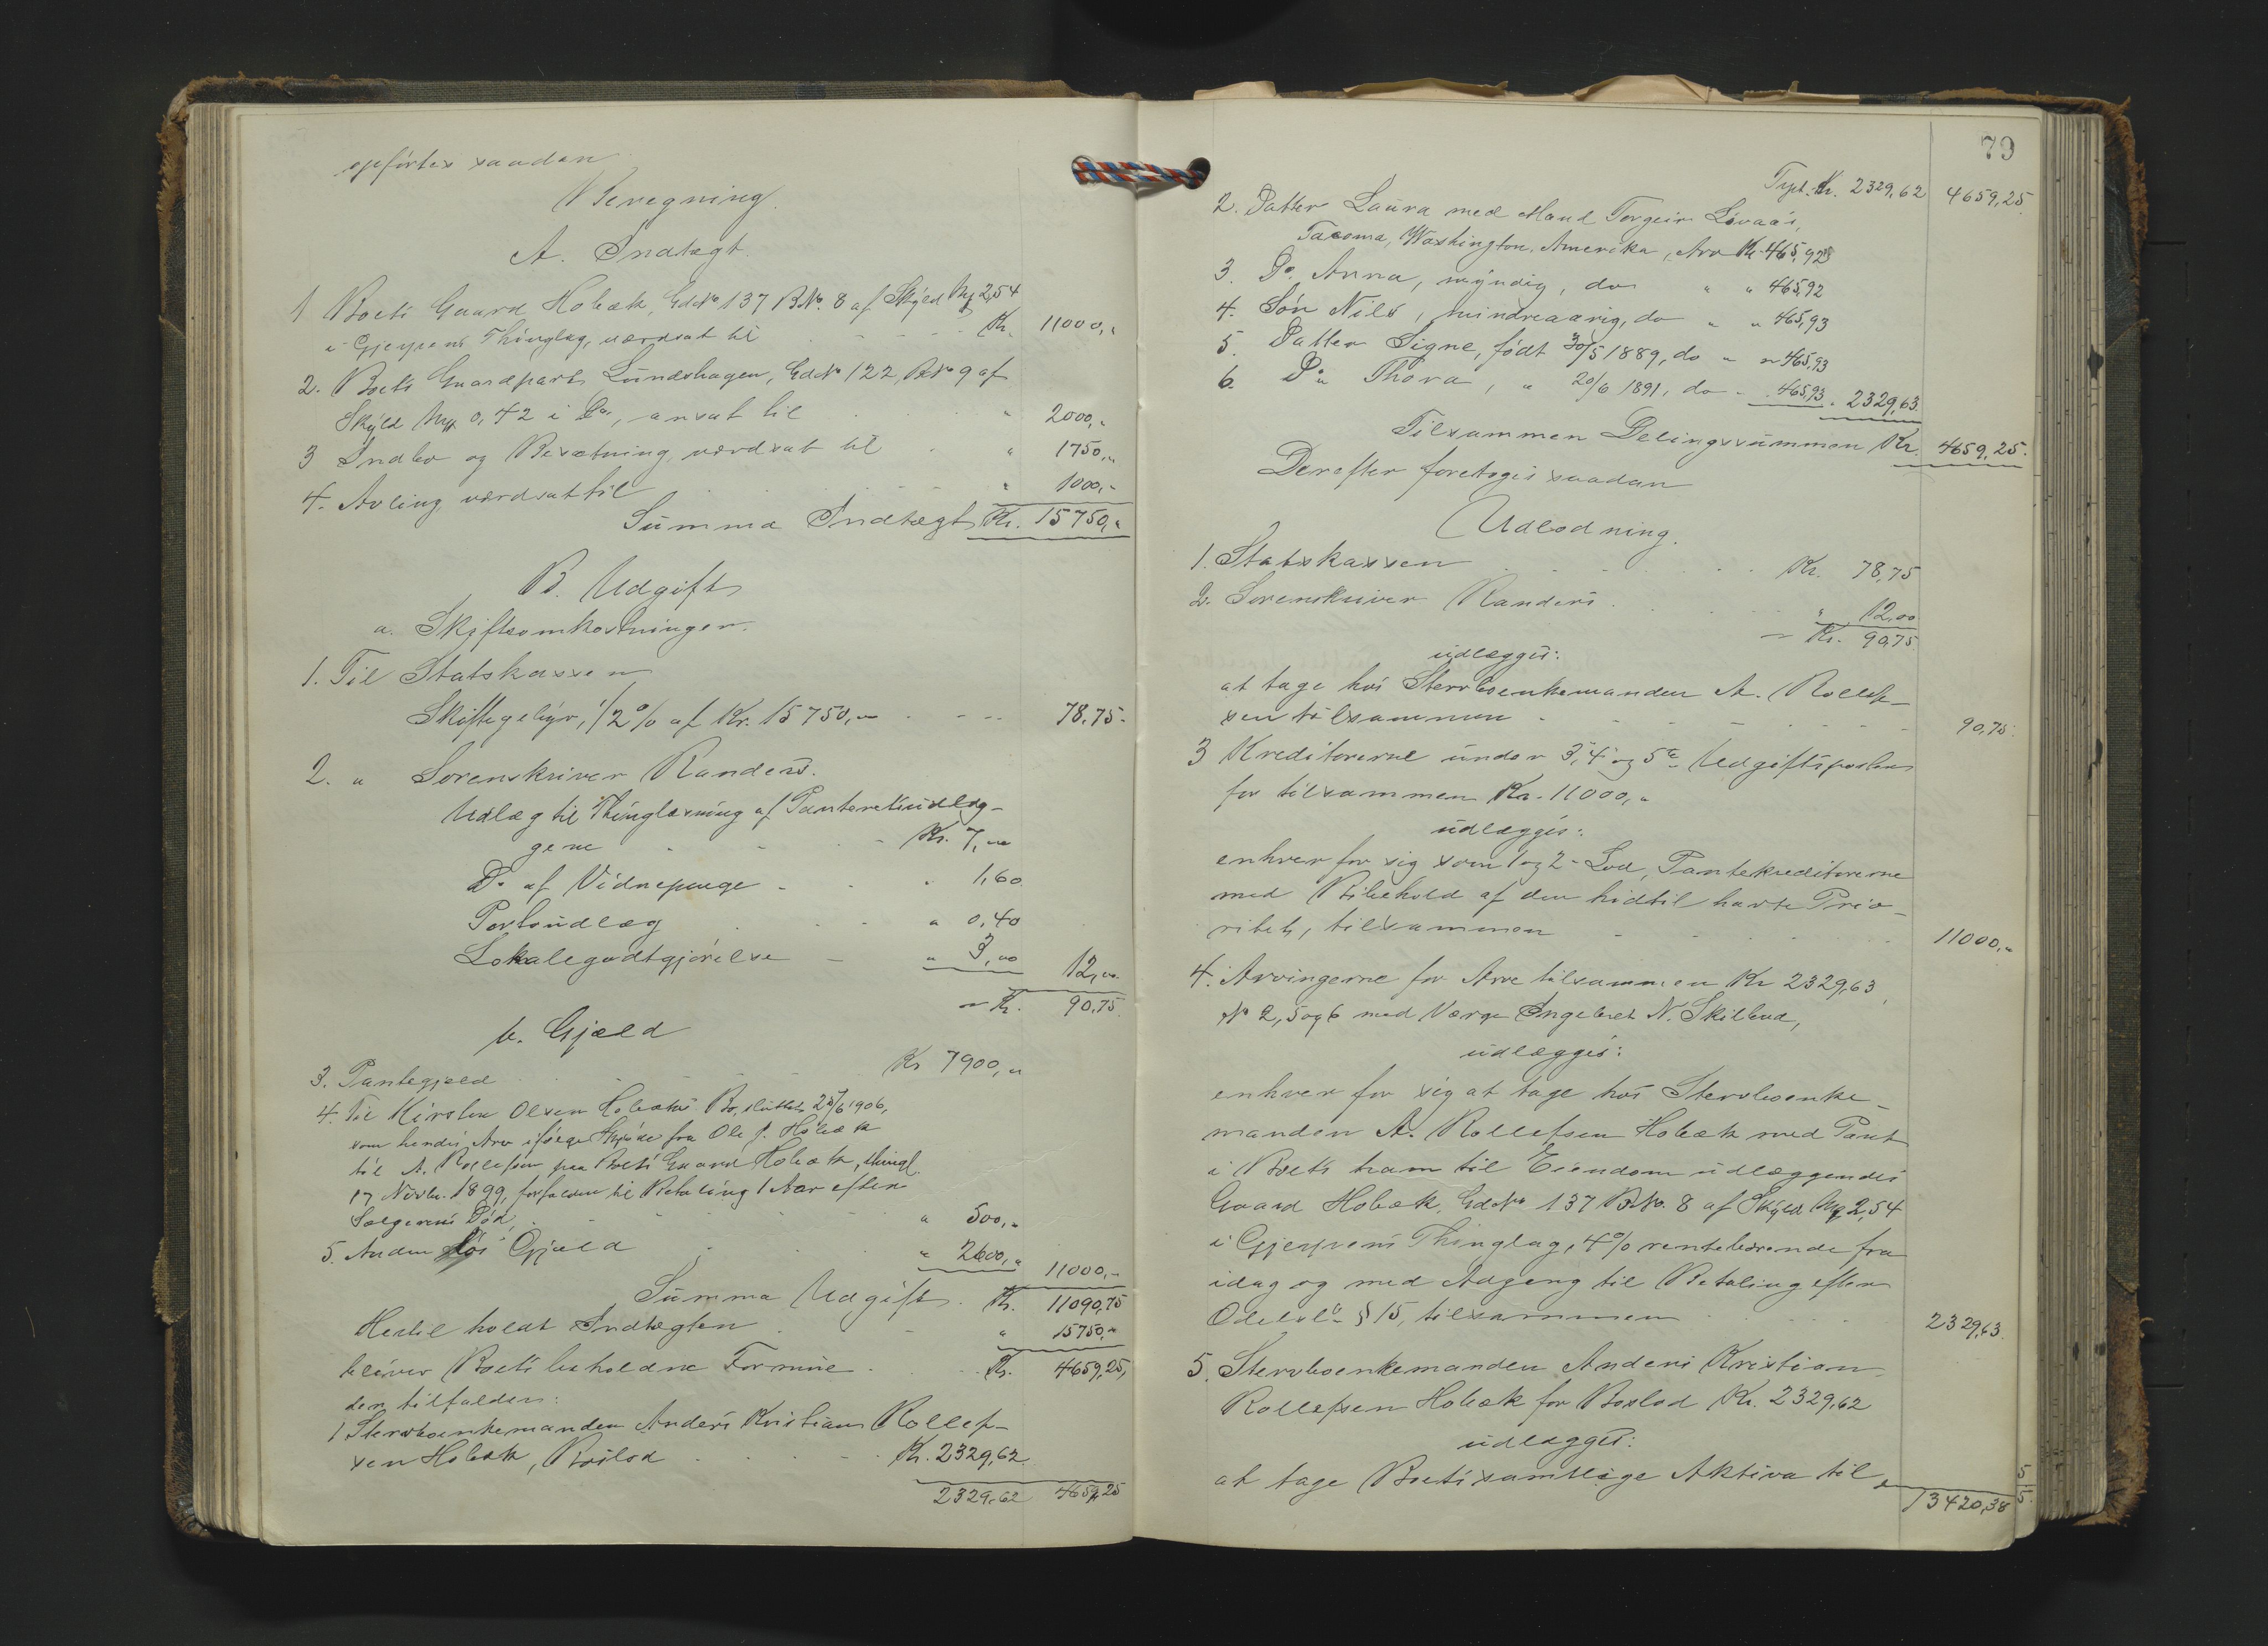 opførtes saadan
Beregning.
A. Indtægt.
1 Boets Gaard Hobæk, Gd№ 137 B.№. 8 af Skyld Mk 2,54
i Gjerpens Thinglag, værdsat til - - - - Kr. 11000,"
2. Boets Gaardpart Lundshagen, Gd№ 122, B№ 9 af
Skyld Mk 0,42 i Do, ansat til " 2000,"
3 Indbo og Besætning, værdsat til " 1750,"
4. Avling værdsat til " 1000,-
Summa Indtægt Kr. 15750,"
B. Udgift
a. Skifteomkostninger.
1. Til Statskassen
Skiftegebyr, 1/2 % af Kr. 15750,- - - - 78,75-
2. " Sorenskriver Randers.
Udlæg til Thinglæsning af Panteretsudlæg-
gene - - - - Kr. 7,00
Do af Vidnepenge - " 1,60
Portoudlæg " 0,40
Lokalegodtgjørelse - " 3,00 12,00
- Kr. 90,75
b. Gjæld
3. Pantegjæld Kr 7900,"
4. Til Kirsten Olsen Hobæks Bo, sluttet 23/6 1906,
som hendes Arv ifølge Skjøde fra Ole J. Hobæk
til A. Rollefsen paa Boets Gaard Hobæk, thingl.
17 Novbr. 1899, forfalden til Betaling 1 Aar efter
Sælgerens Død, - - - " 500,"
5. Anden løs Gjæld " 2600,- 11000,-
Summa Udgift. Kr. 11090,75
Hertil holdt Indtægten " 15750,-
bliver Boets beholdne Formue Kr. 4659,25,
der tilfalder:
1 Stervboenkemanden Anders Kristian Rollef-
sen Hobæk, Boslod Kr. 2329,62
2329,62 4659,25
79
Trpt. Kr. 2329,62 4659,25.
2. Datter Laura med Mand Torgeir Løvaas,
Tacoma, Washington, Amerika, Arv Kr. 465,92
3. Do. Anna, myndig, do " " 465,92
4. Søn Nils, mindreaarig, do " " 465,93
5. Datter Signe, født 30/5 1889, do " " 465,93
6. Do " Thora, " 20/6 1891, do - 465,93 " 2329,63.
Tilsammen Delingssummen Kr. 4659,25.
Derefter foretoges saadan
Udlodning.
1. Statskassen Kr. 78,75
2. Sorenskriver Randers " 12,00
- Kr. 90,75
udlægges:
at tage hos Stervboenkemanden A. Rollef-
sen tilsammen - - - - 90,75.
3 Kreditorerne under 3, 4 og 5te Udgiftsposter
for tilsammen Kr. 11000,"
udlægges:
enhver for sig som 1 og 2- Lod, Pantekreditorerne
med Bibehold af den hidtil havte Prio-
ritet, tilsammen - - - 11000,-
4. Arvingerne for Arv tilsammen Kr 2329,63,
№ 2, 5 og 6 med Værge Ingebret N. Skilbred,
udlægges:
enhver for sig at tage hos Stervboenke-
manden A. Rollefsen Hobæk med Pant
i Boets ham til Eiendom udlæggendes
Gaard Hobæk, Gd№ 137 B.№. 8 af Skyld Mk 2,54
i Gjerpens Thinglag, 4% rentebærende fra
idag og med Adgang til Betaling efter
Odelsl. § 15, tilsammen 2329,63.
5. Stervboenkemanden Anders Kristian
Rollefsen Hobæk for Boslod Kr. 2329,62
udlægges:
at tage Boets samtlige Aktiva til
13420,38 5/5.